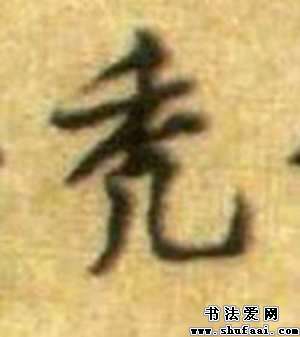 秃
书法爱网
www.shufaai.com